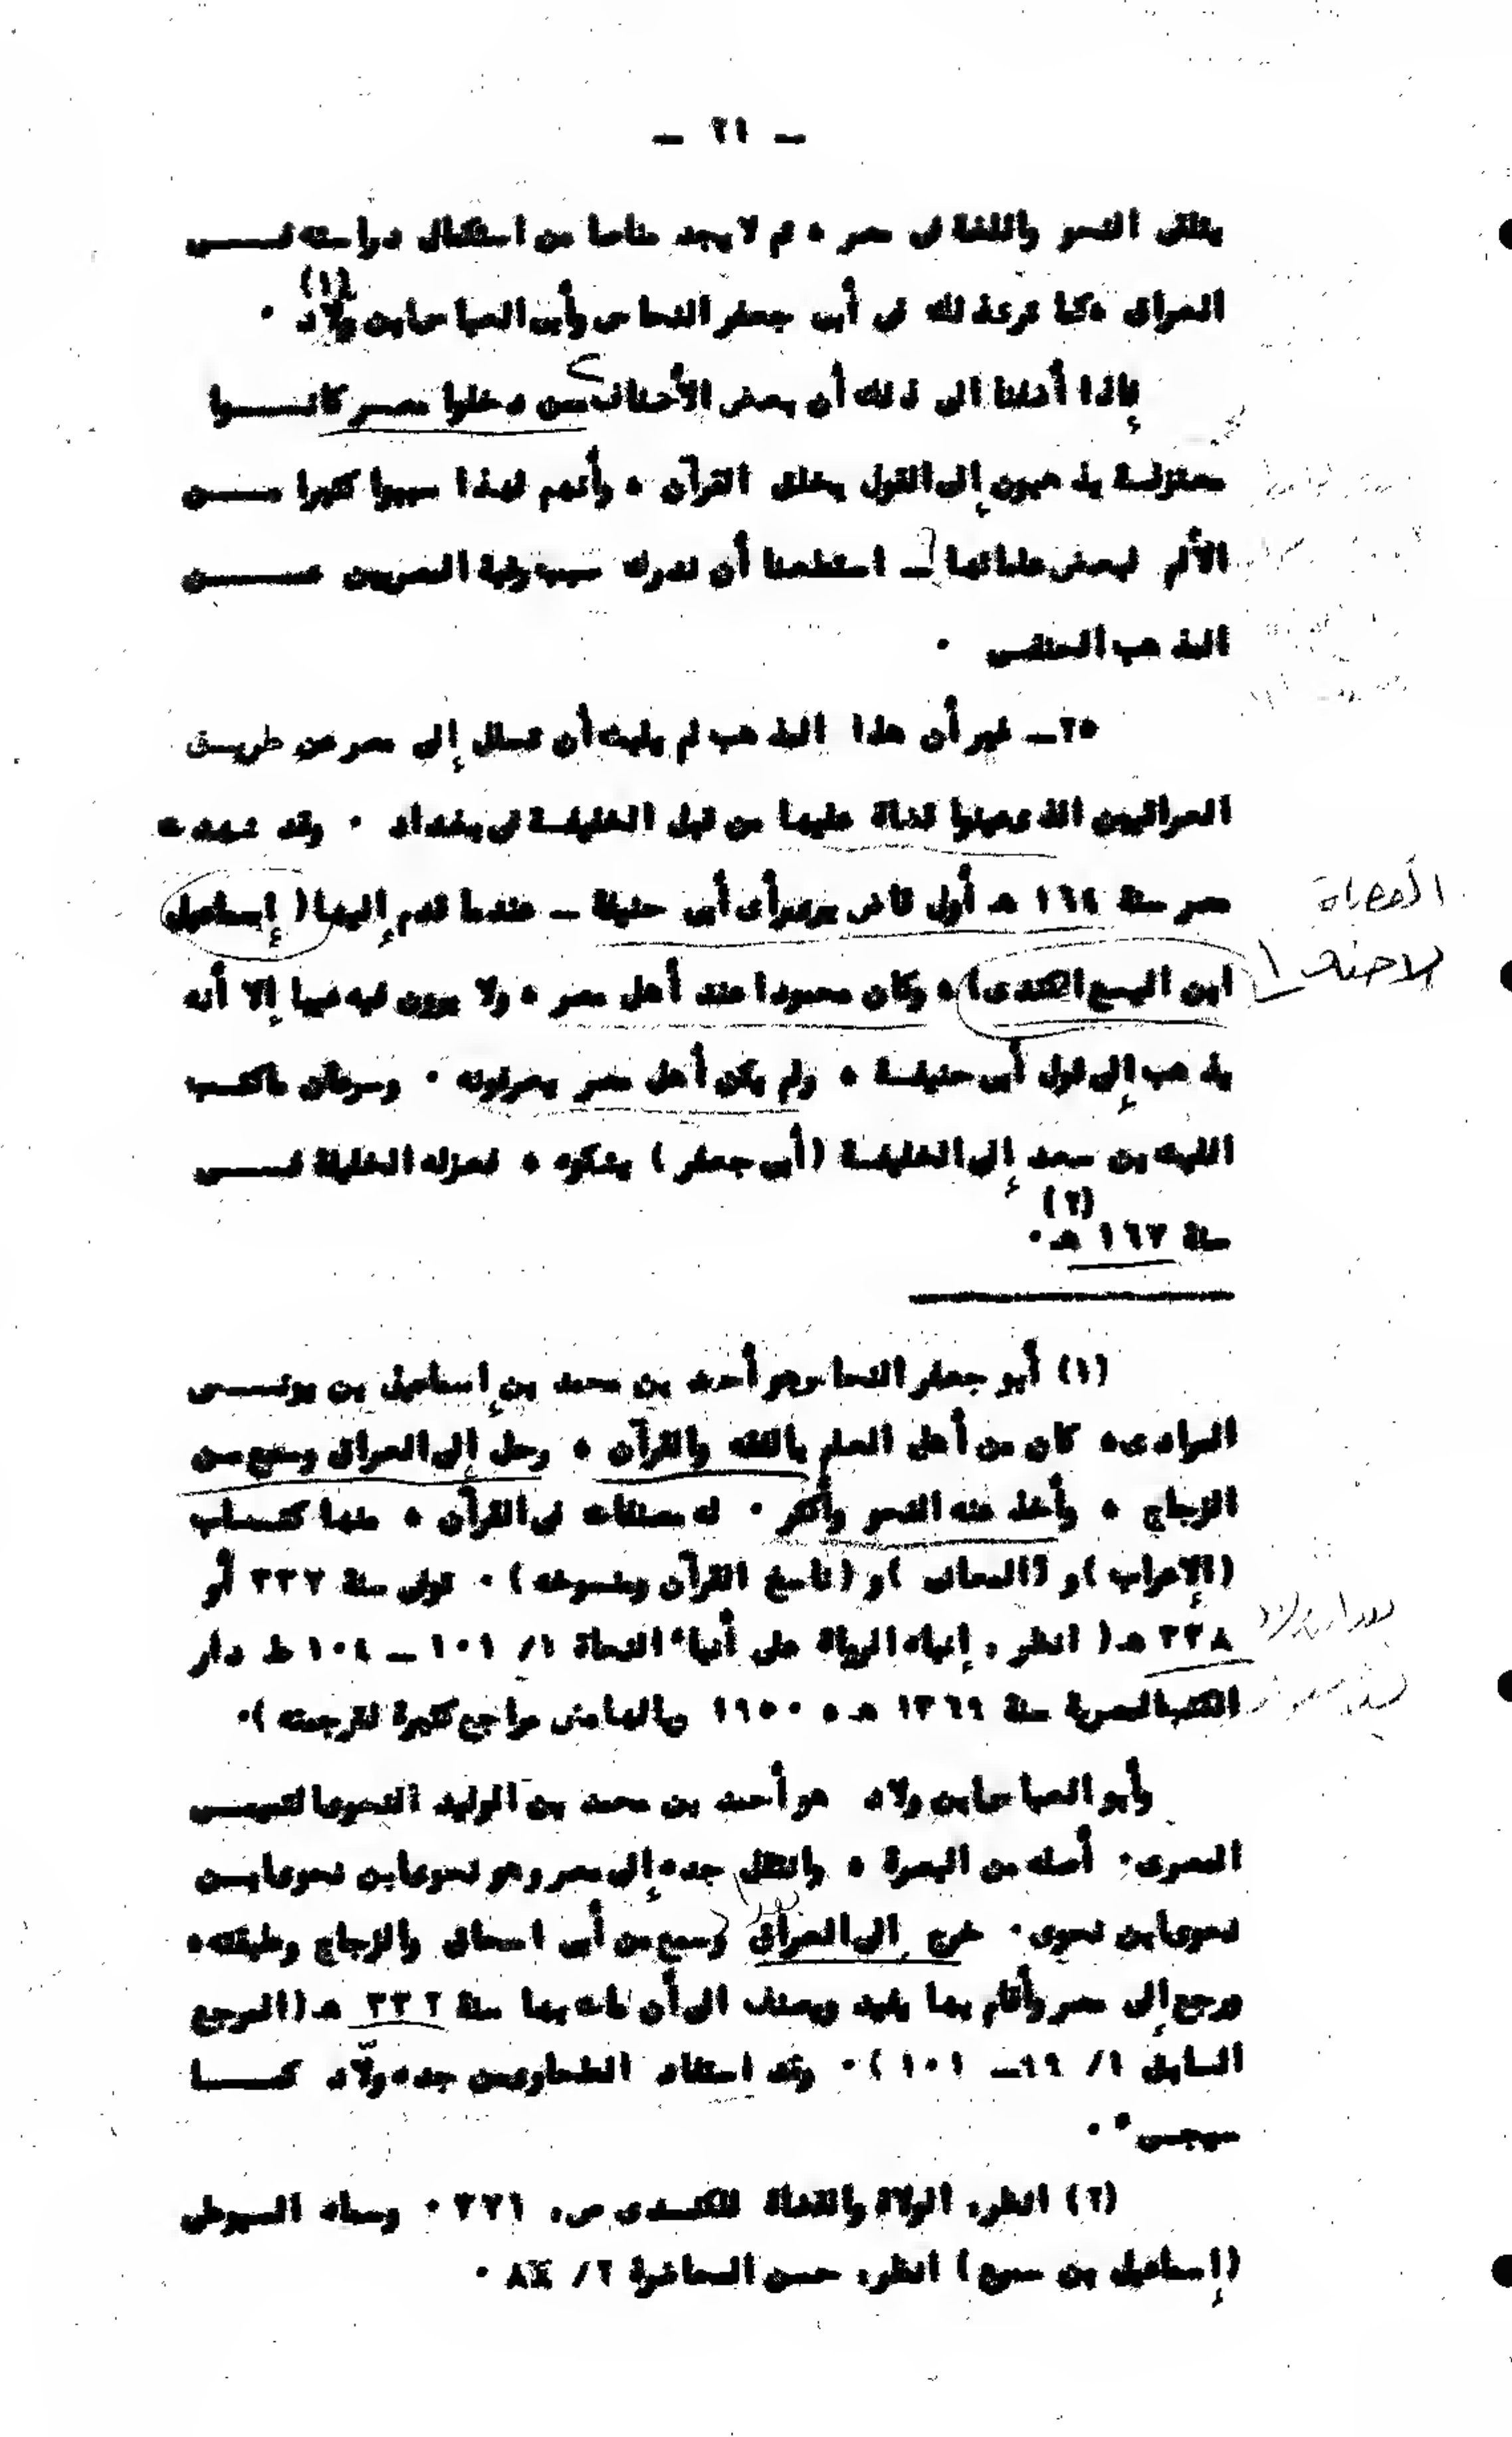 ـ ٢١ ـ
يتلقى النحو واللغة فى مصر ، ثم لا يجد مناصا من استكمال دراسته فـــى
العراق ، كما نرى ذلك فى أبى جعفر النحاس وأبى العباس ابن ولاد (١) ٠
فإذا أضفنا الى ذلك أن بعض الأحناف ممن دخلوا مصر كانـــوا
معتزلـة يذهبون إلى القول بخلق القرآن ، وأنهم لهذا سببوا كثيرا مـــن
الألم لبعض علمائها ـ استطعنا أن ندرك سبب رغبة المصريين عـــن
المذهب الحنفـى ٠
٢٥ـ غير أن هذا المذهب لم يلبث أن تسلل إلى مصر عن طريـق
العراقيين الذين عينوا قضاة عليها من قبل الخليفـة فى بغداد ٠ وقد شهدت
مصر سنة ١٦٤ هـ أول قاض يرى رأى أبى حنيفة ـ عندما قدم إليها ( إسماعيل
ابن اليسع الكندى ) ، وكان محمودا عند أهل مصر ، ولا يرون فيه عيبا إلا أنه
يذهب إلى قول أبى حنيفـة ، ولم يكن أهل مصر يعرفونه ٠ وسرعان ماكتـب
الليث بن سعد إلى الخليفـة (أبى جعفر ) يشكوه ، فعزله الخليفة فـــى
سنة ١٦٧ هـ (٢) ٠
القضاة
الاحناف
(١) أبو جعفر النحاس هو أحمد بن محمد بن إسماعيل بن يونـــس
المرادى، كان من أهل العلم بالفقه والقرآن ، رحل إلى العراق وسمع من
الزجاج ، وأخذ عنه النحو وأكثر ٠ له مصنفات فى القرآن ، منها كتـاب
(الإعراب ) و (المعانى ) و (ناسخ القرآن ومنسوخه ) ٠ توفى سنة ٣٣٧ أو
٣٣٨ هـ ( انظر ، إنباه الرواة على أنباء النحاة ١/ ١٠١ ـ ١٠٤ ط دار
الكتب المصرية سنة ١٣٦٩ هـ ، ١٩٥٠ وبالهامش مراجع كثيرة لترجمته )٠
وأبو العباس ابن ولاد هو أحمد بن محمد بن الوليد النحوى التميمـى
المصرى٠ أصله من البصرة ، وانتقل جده إلى مصر وهو نحوى ابن نحوى ابـن
نحوى ابن نحوى٠ خرج إلى العراق وسمع من أبى اسحاق والزجاج وطبقته،
ورجع إلى مصر وأقام بها يفيد ويصنف الى أن مات بها سنة ٣٣٢ هـ ( المرجع
السابق ١/ ٩٩ـ ١٠١ )٠ وقد استفاد الطحاوى من جده ولّاد كمـــا
سيجـىء ٠
(٢) انظر، الولاة والقضاة للكنـدى ص، ٣٧١ ٠ وسماه السيوطى
(إسماعيل بن سميع ) انظر، حسن المحاضرة ٢/ ٨٨ ٠